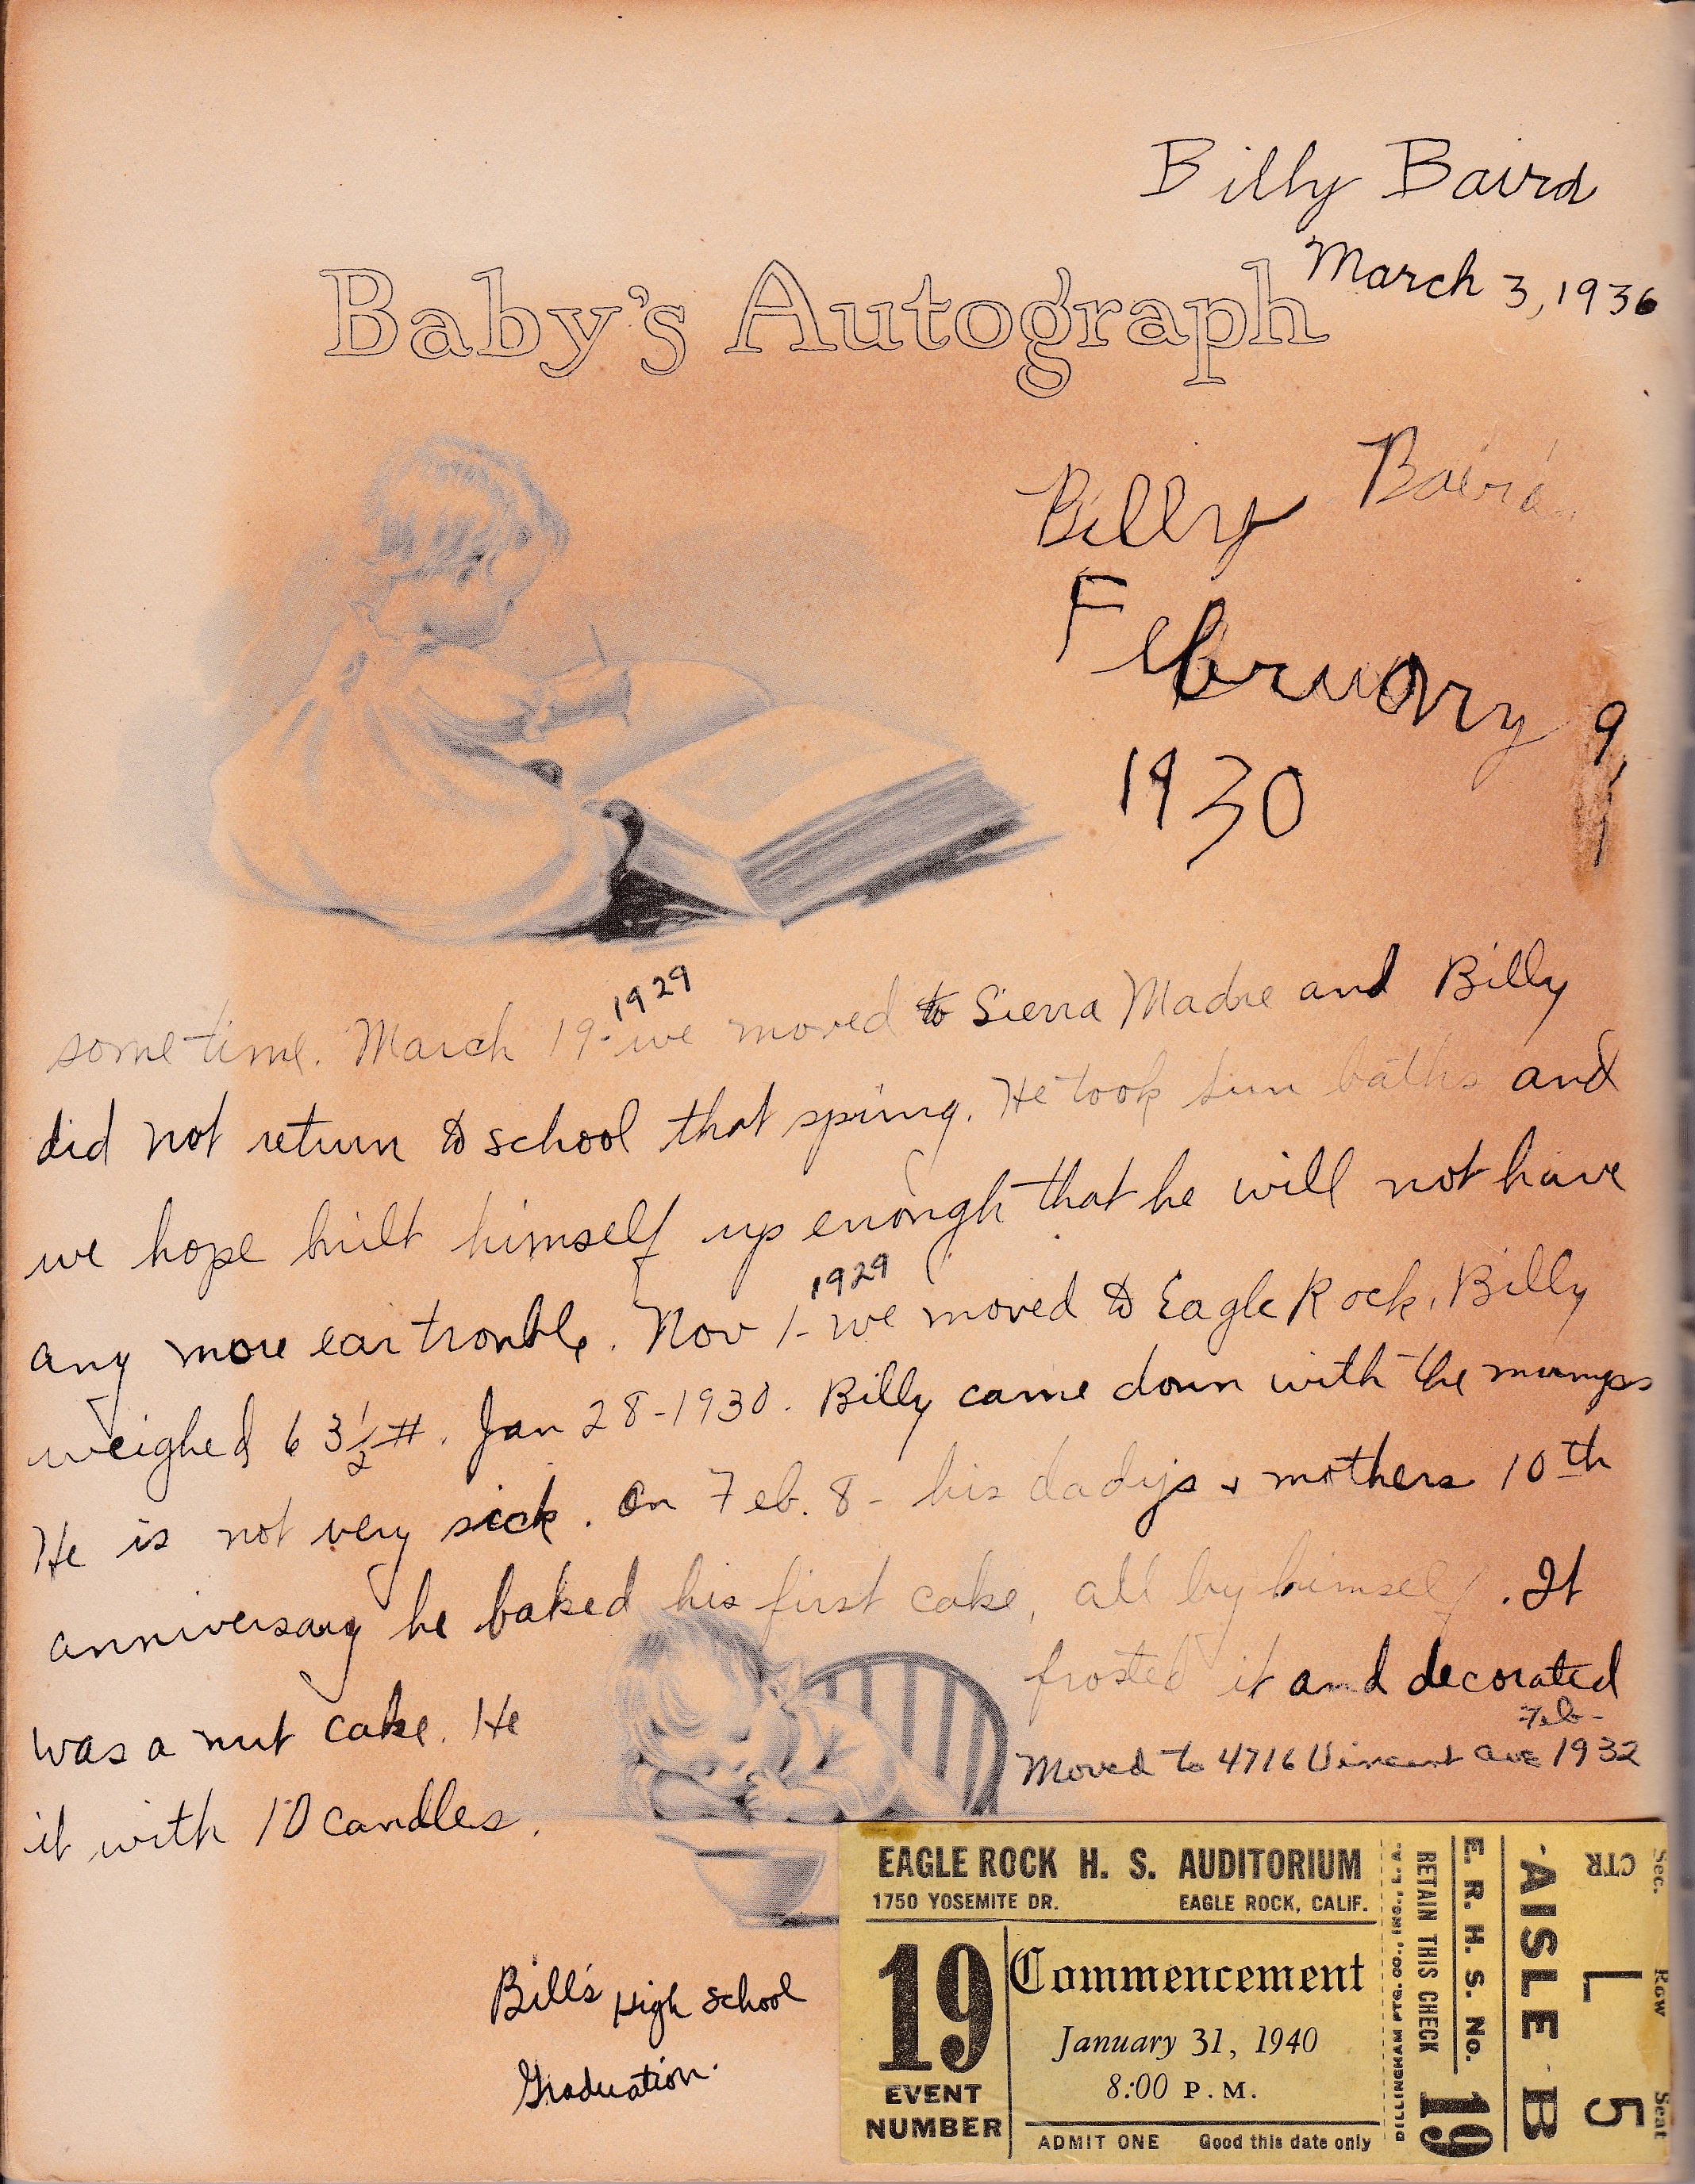 Billy Baird
March 3, 1936
Baby's Autograph
Billy Baird
February 9,
1930
1929
sometime. March 19- we moved to Sierra Madre and Billy
did not return to school that spring. He took sun baths and
we hope built himself up enough that he will not have
1929
any more ear trouble. Nov 1- we moved to Eagle Rock. Billy
weighed 63½#. Jan 28-1930. Billy came down with the mumps
He is not very sick. On Feb. 8- his dadys & mothers 10th
anniversary he baked his first cake, all by himself. It
was a nut cake. He frosted it and decorated
it with 10 candles.
Feb-
Moved to 4716 Vincent Ave 1932
Bill's High School
Graduation.
EAGLE ROCK H. S. AUDITORIUM
1750 YOSEMITE DR. EAGLE ROCK, CALIF.
19
EVENT
NUMBER
Commencement
January 31, 1940
8:00 P.M.
ADMIT ONE Good this date only
DILLINGHAM PTG. CO., INC., L. A.
RETAIN THIS CHECK
E. R. H. S. No. 19
AISLE B
Sec. Row Seat
CTR L 5